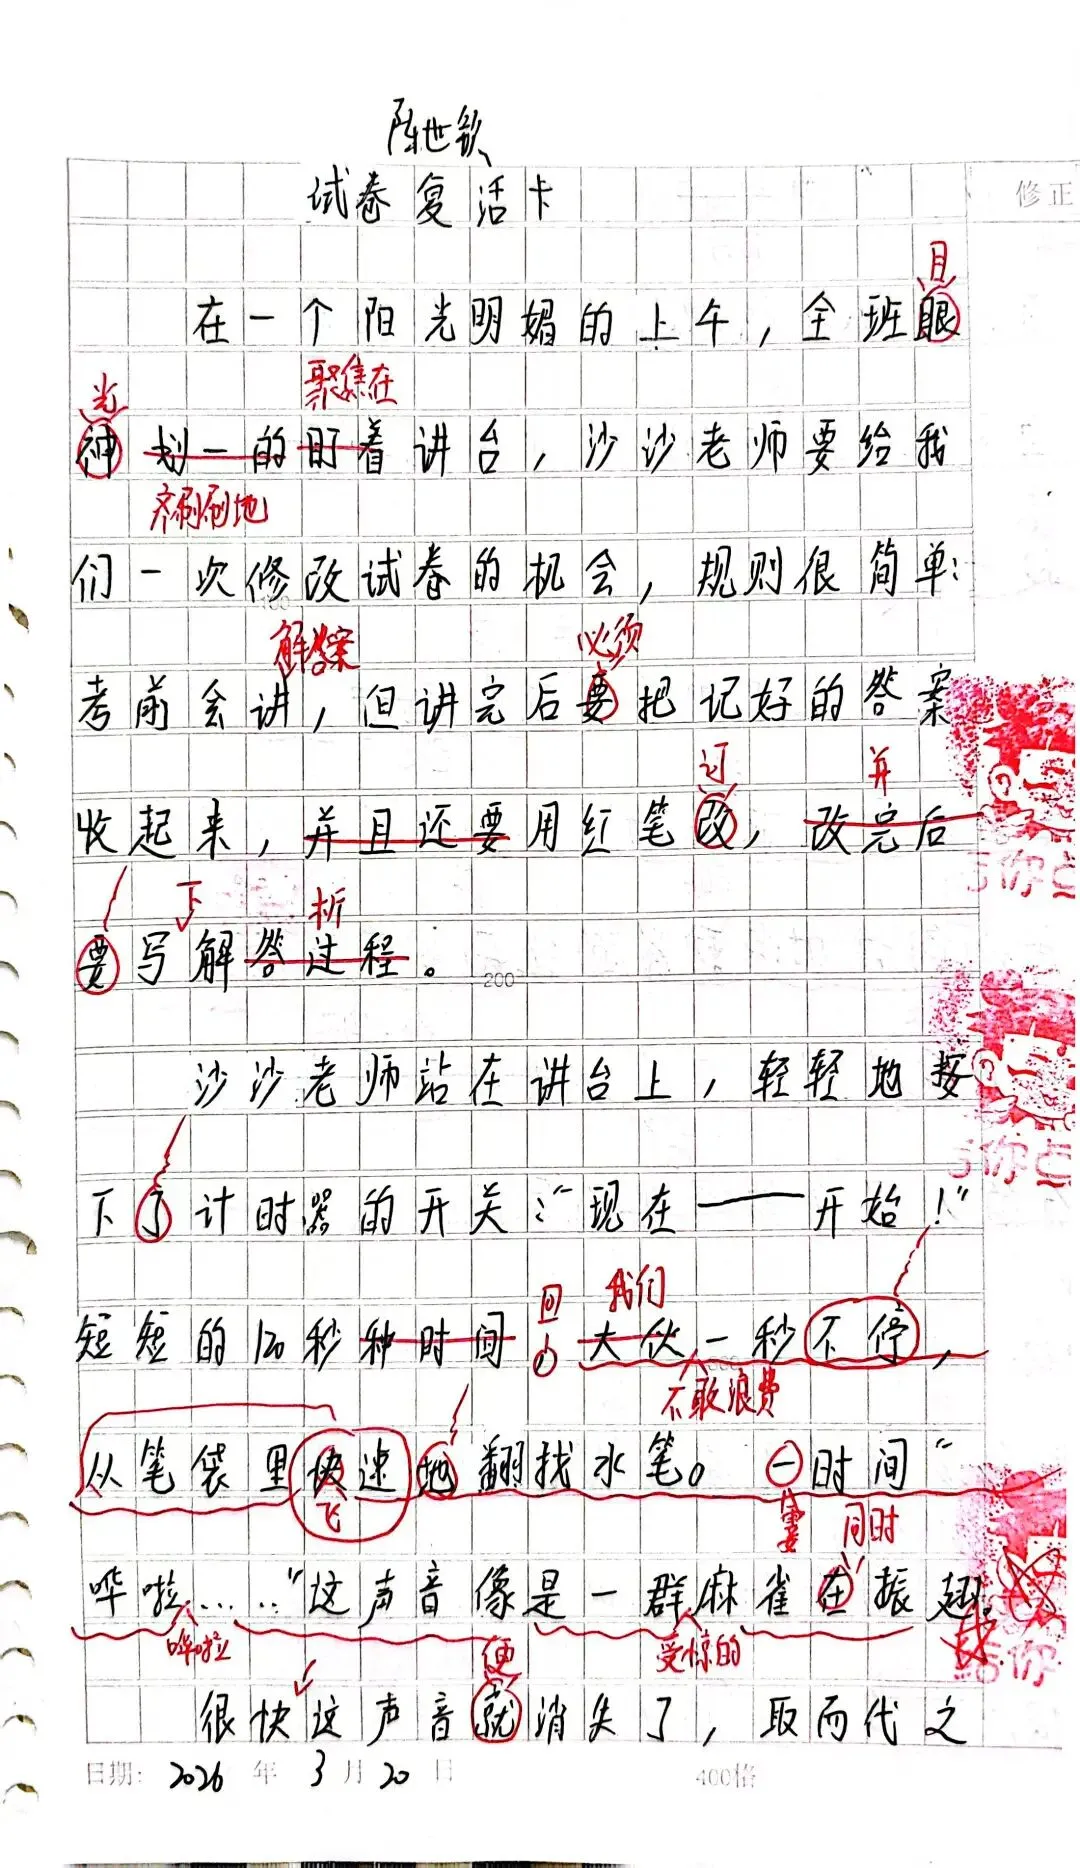 陈世钦
试卷复活卡
修正
目
在一个阳光明媚的上午，全班眼
光 聚焦在
神划一的盯着讲台，沙沙老师要给我
齐刷刷地
们一次修改试卷的机会，规则很简单：
解答案 必须
考前会讲，但讲完后要把记好的答案
订 并
收起来，并且还要用红笔改，改完后
下 析
要写解答过程。
200
沙沙老师站在讲台上，轻轻地按
下了计时器的开关：“现在——开始！”
回 我们
短短的120秒种时间，大伙一秒不停，
不敢浪费
从笔袋里快速地翻找水笔。一时间“
飞 霎 同时
哗啦……”这声音像是一群麻雀在振翅。
哗啦 便 受惊的
很快这声音就消失了，取而代之
日期：2026年3月20日 400格
给你点
给你点
给你